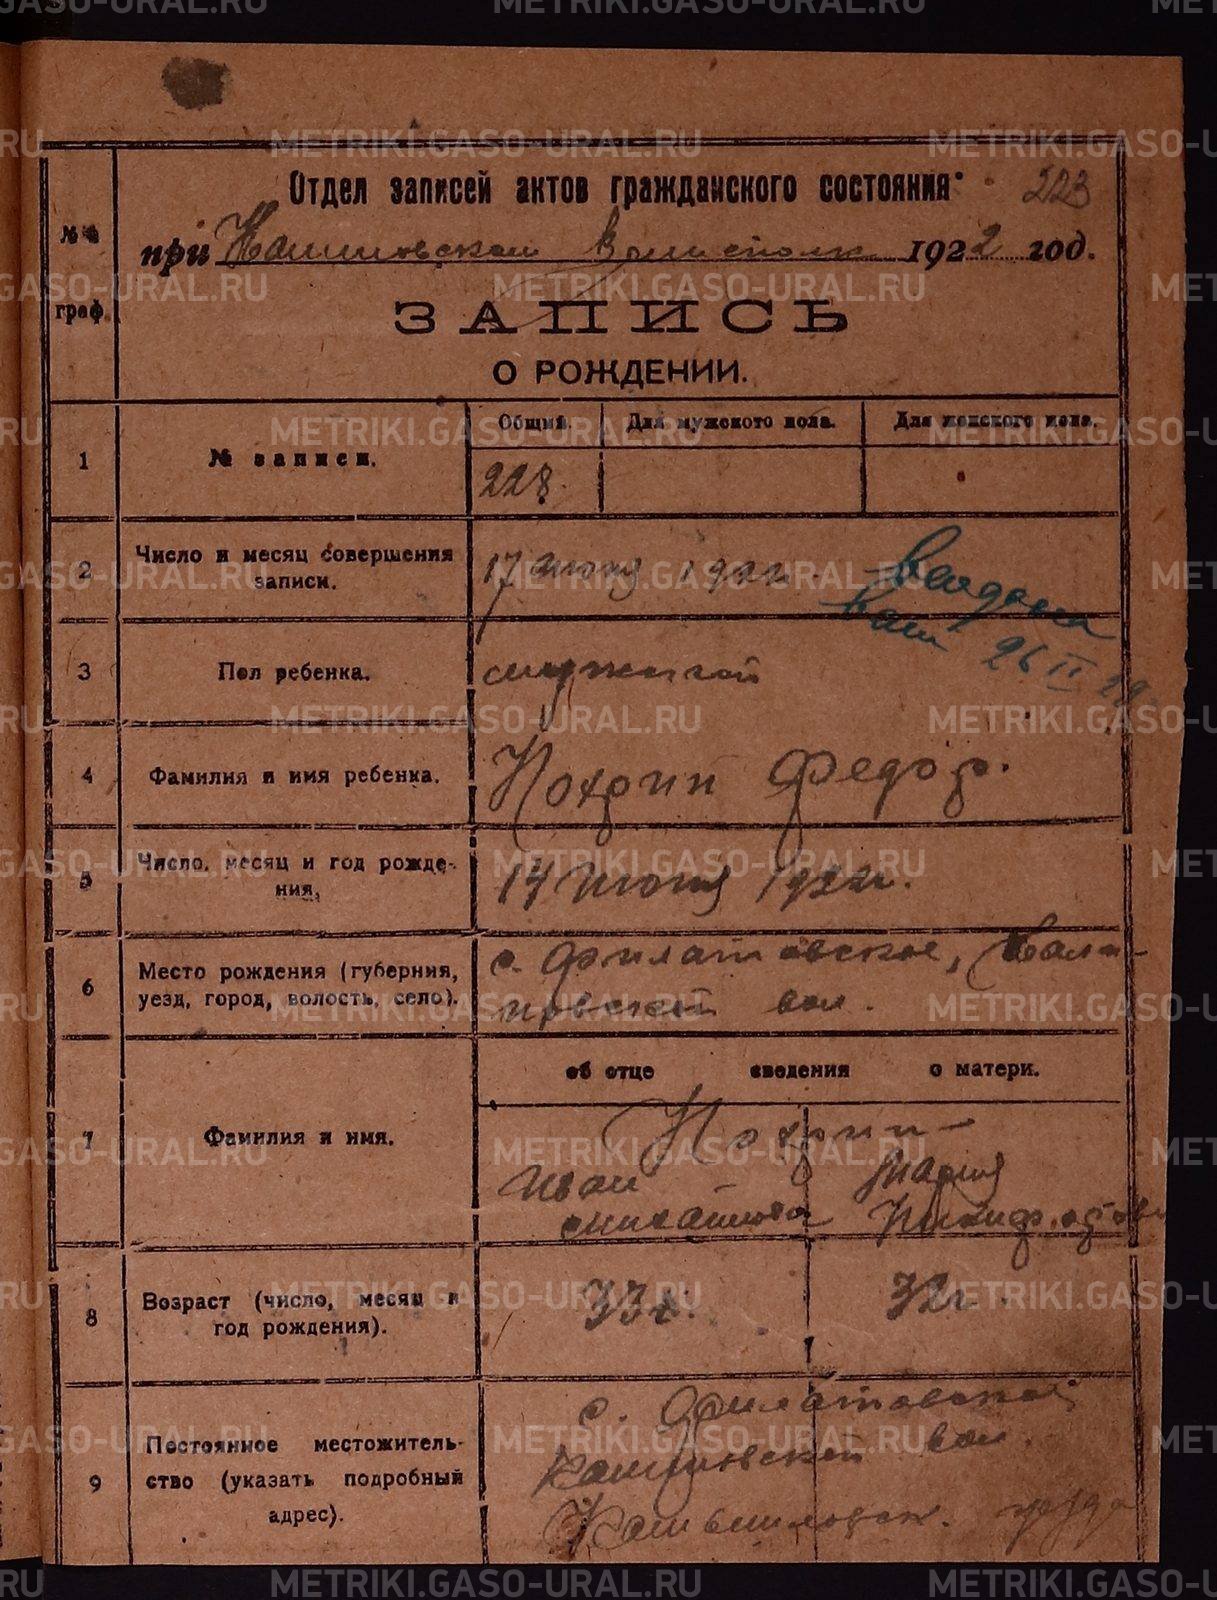 Отдел записей актов гражданского состояния 223
№№ граф.
при Волисполк. 1922 год.
ЗАПИСЬ
О РОЖДЕНИИ.
1 № записи.
Общий. Для мужского пола. Для женского пола.
228.
2 Число и месяц совершения записи.
17 июня 1922г.
Выдана
26 II
3 Пол ребенка.
мужской
4 Фамилия и имя ребенка.
Нохрин Федор.
5 Число, месяц и год рождения.
14 июня 1922г.
6 Место рождения (губерния, уезд, город, волость, село).
с. Филатовское,
вол.
об отце сведения о матери.
7 Фамилия и имя.
Нохрин
Иван Мария
8 Возраст (число, месяц и год рождения).
33г. 32г.
9 Постоянное местожительство (указать подробный адрес).
с. Филатовское
вол.
уезда
METRIKI.GASO-URAL.RU